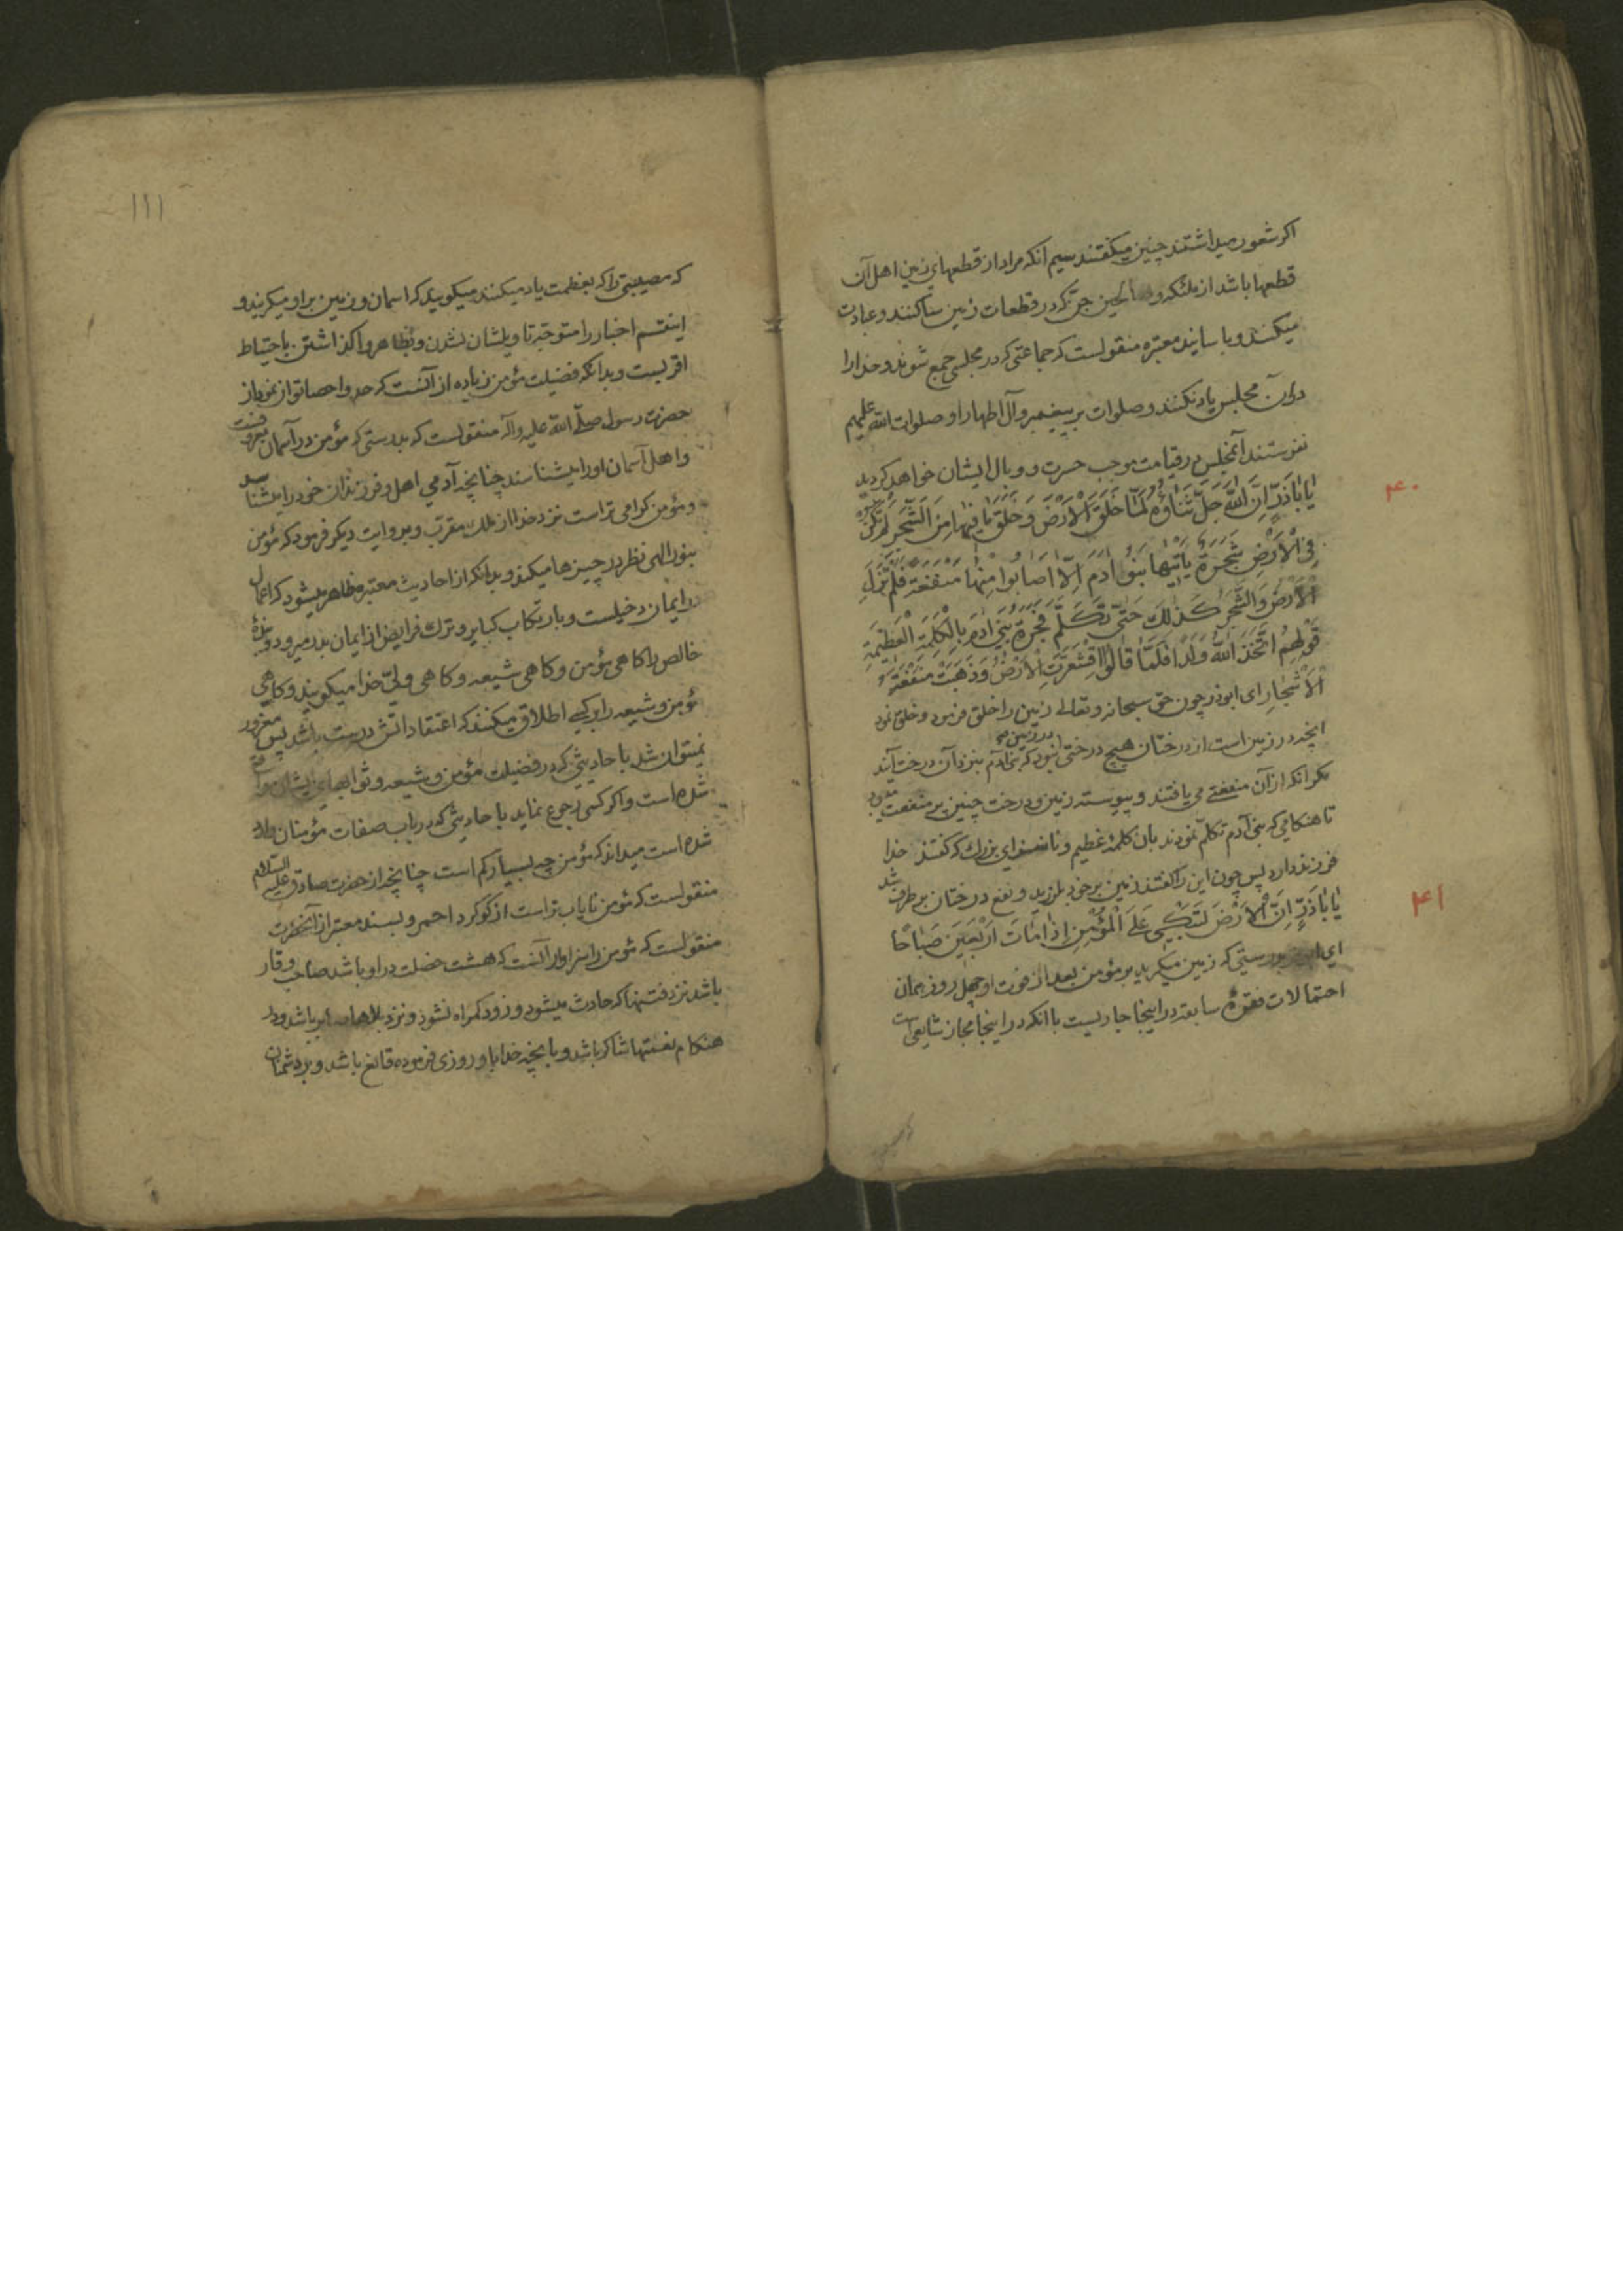 اکر شعور میداشتند چنین میکفتند سیم انکه مراد از قطعهای زمین اهل آن
قطعها باشد از ملئکه و صالحین جن که در قطعات زمین ساکنند و عبادت
میکنند و باسانید معتبره منقولست که جماعتی که در مجلسی جمع شوند و خدا را
دران مجلس یاد نکنند و صلوات بر پیغمبر و آل اطهار او صلوات الله علیهم
نفرستند آنمجلس در قیامت موجب حسرت و وبال ایشان خواهد کردید
۴۰
یٰا اَبٰاذَرٍّ اِنَّ اللّٰهَ جَلَّ ثَنٰاؤُهُ لَمّٰا خَلَقَ الْاَرْضَ وَ خَلَقَ مٰا فِیْهٰا مِنَ الشَّجَرِ لَمْ تَکُنْ
فِی الْاَرْضِ شَجَرَةٌ یَاْتِیْهٰا بَنُو اٰدَمَ اِلّٰا اَصٰابُوا مِنْهٰا مَنْفَعَةً فَلَمْ تَزَلِ
الْاَرْضُ وَ الشَّجَرُ کَذٰلِكَ حَتّٰی تَکَلَّمَ فَجَرَةُ بَنِی اٰدَمَ بِالْکَلِمَةِ الْعَظِیْمَةِ
قَوْلِهِمْ اتَّخَذَ اللّٰهُ وَلَدًا فَلَمّٰا قٰالُوْا اقْشَعَرَّتِ الْاَرْضُ وَ ذَهَبَتْ مَنْفَعَةُ
الْاَشْجٰارِ ای ابوذر چون حق سبحانه و تعالی زمین را خلق فرمود و خلق نمود
انچه در زمین است از درختان هیچ درختی در زمین نبود که بنی آدم بنزد آن درخت آیند
مکر انکه ازان منفعتی می یافتند و پیوسته زمین و درخت چنین پر منفعت بود
تا هنکامی که بنی آدم تکلم نمودند بان کلمهٔ عظیم و ناسزای بزرك که کفتند خدا
فرزند دارد پس چون این را کفتند زمین بر خود بلرزید و نفع درختان برطرف شد
۴۱
یٰا اَبٰاذَرٍّ اِنَّ الْاَرْضَ لَتَبْکِی عَلَی الْمُؤْمِنِ اِذٰا مٰاتَ اَرْبَعِیْنَ صَبٰاحًا
ای ابوذر بدرستی که زمین میکرید بر مؤمن بعد از فوت او چهل روز همان
احتمالات فقرهٔ سابقه در اینجا جاریست با انکه در اینجا مجاز شایعی است
۱۱۱
که مصیبتی را که بعظمت یاد میکنند میکویند که اسمان و زمین بر او میکریند و
اینقسم اخبار را متوجه تاویلشان نشدن و بظاهر واکذاشتن باحتیاط
اقربست و بدانکه فضیلت مؤمن زیاده از آنست که حد و احصا توان نمود از
حضرت رسول صلّی الله علیه وآله منقولست که بدرستی که مؤمن در آسمان معروفست
و اهل آسمان او را میشناسند چنانچه آدمی اهل و فرزندان خود را میشناسد
و مؤمن کرامی تر است نزد خدا از ملك مقرّب و بروایت دیکر فرمود که مؤمن
بنور الهی نظر در چیزها میکند و بدانکه از احادیث معتبره ظاهر میشود که اعمال
در ایمان دخیلست و بارتکاب کبایر و ترك فرایض از ایمان بدر میرود و بندهٔ
خالص را کاهی مؤمن و کاهی شیعه و کاهی ولیّ خدا میکویند و کاهی
مؤمن و شیعه را بر کسی اطلاق میکنند که اعتقاداتش درست باشد پس مغرور
نمیتوان شد باحادیثی که در فضیلت مؤمن و شیعه و ثوابهای ایشان
شده است و اکر کسی رجوع نماید باحادیثی که در باب صفات مؤمنان وارد
شده است میداند که مؤمن چه بسیار کم است چنانچه از حضرت صادق علیه السلام
منقولست که مؤمن نایاب تر است از کوکرد احمر و بسند معتبر از آنحضرت
منقولست که مؤمن را سزاوار آنست که هشت خصلت در او باشد صاحب وقار
باشد نزد فتنها که حادث میشود و زود کمراه نشود و نزد بلاها صابر باشد و در
هنکام نعمتها شاکر باشد و بانچه خدا باو روزی فرموده قانع باشد و بر دشمنان